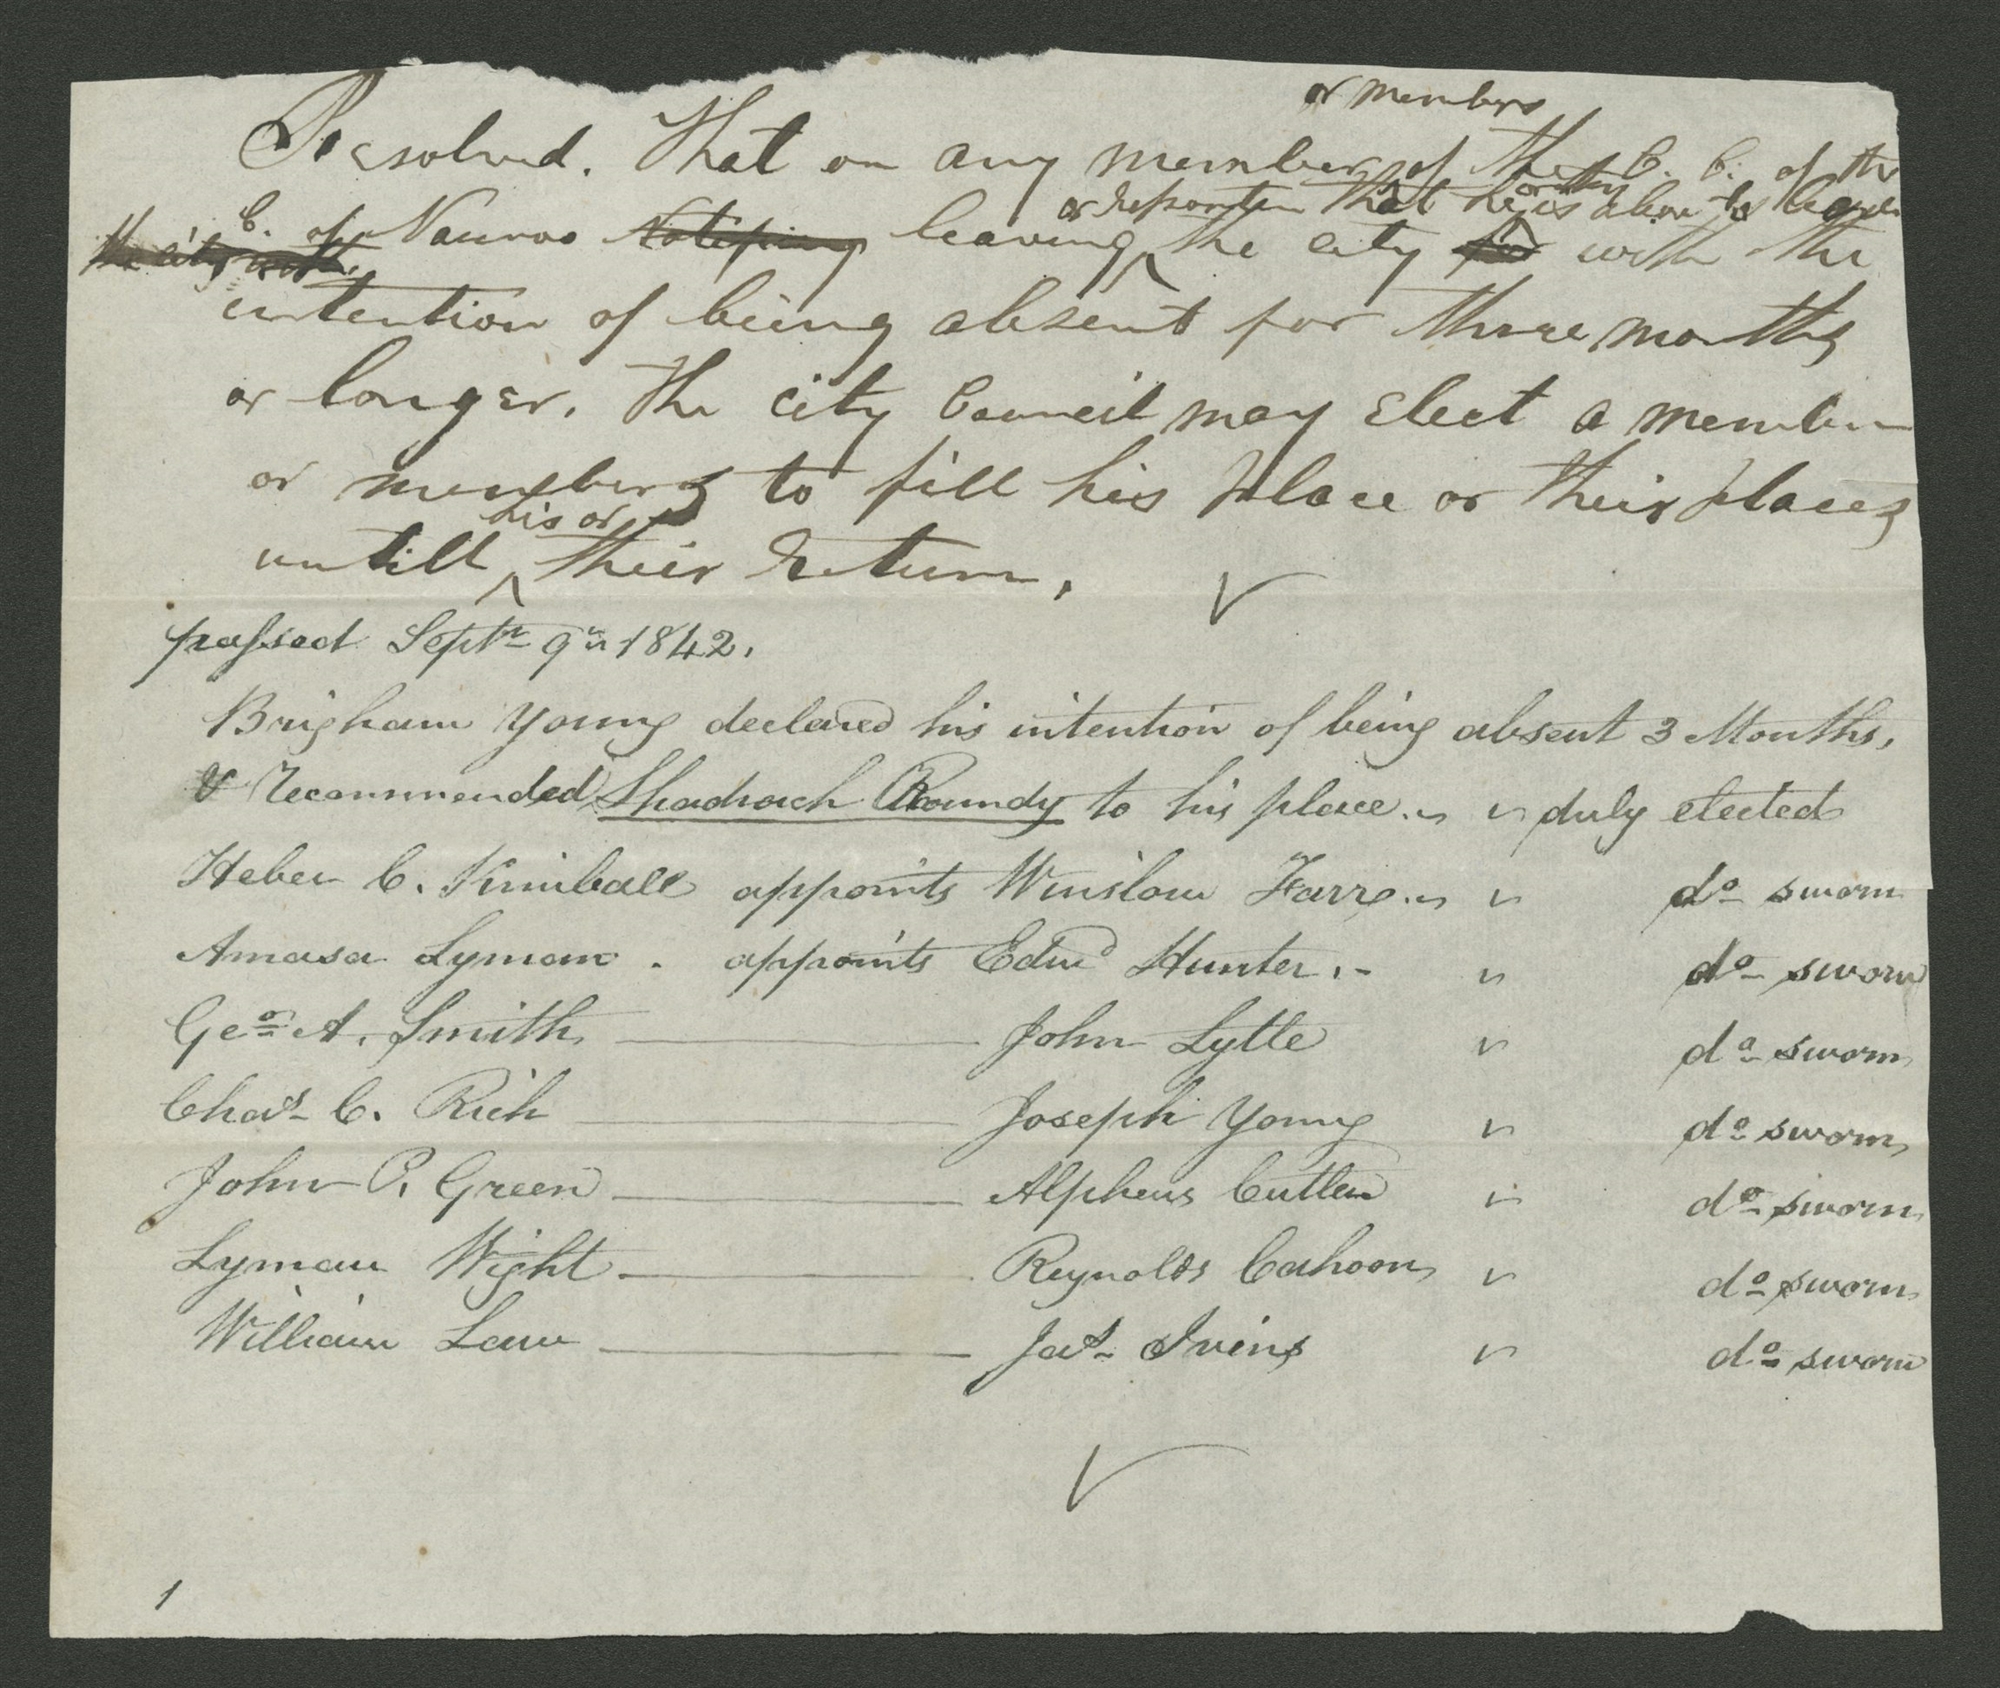 or members
Resolved. That on any member of the C. C. of the
or reporten that he or they is about to leave
C. of Nauvoo Notifying leaving the city for with the
the city with
intention of being absent for three months
or longer. The city Council may elect a member
or members to fill his place or their places
his or
untill their return.
passed Septr 9th 1842.
Brigham Young declared his intention of being absent 3 Months,
& recommended Shadrach Roundy to his place. duly elected
Heber C. Kimball appoints Winslow Farr. do sworn
Amasa Lyman. appoints Edwd Hunter. do sworn
Geo A. Smith — John Lytle do sworn
Chas C. Rich — Joseph Young do sworn
John P. Green — Alpheus Cutler do sworn
Lyman Wight — Reynolds Cahoon do sworn
William Law — Jas Ivins do sworn
1